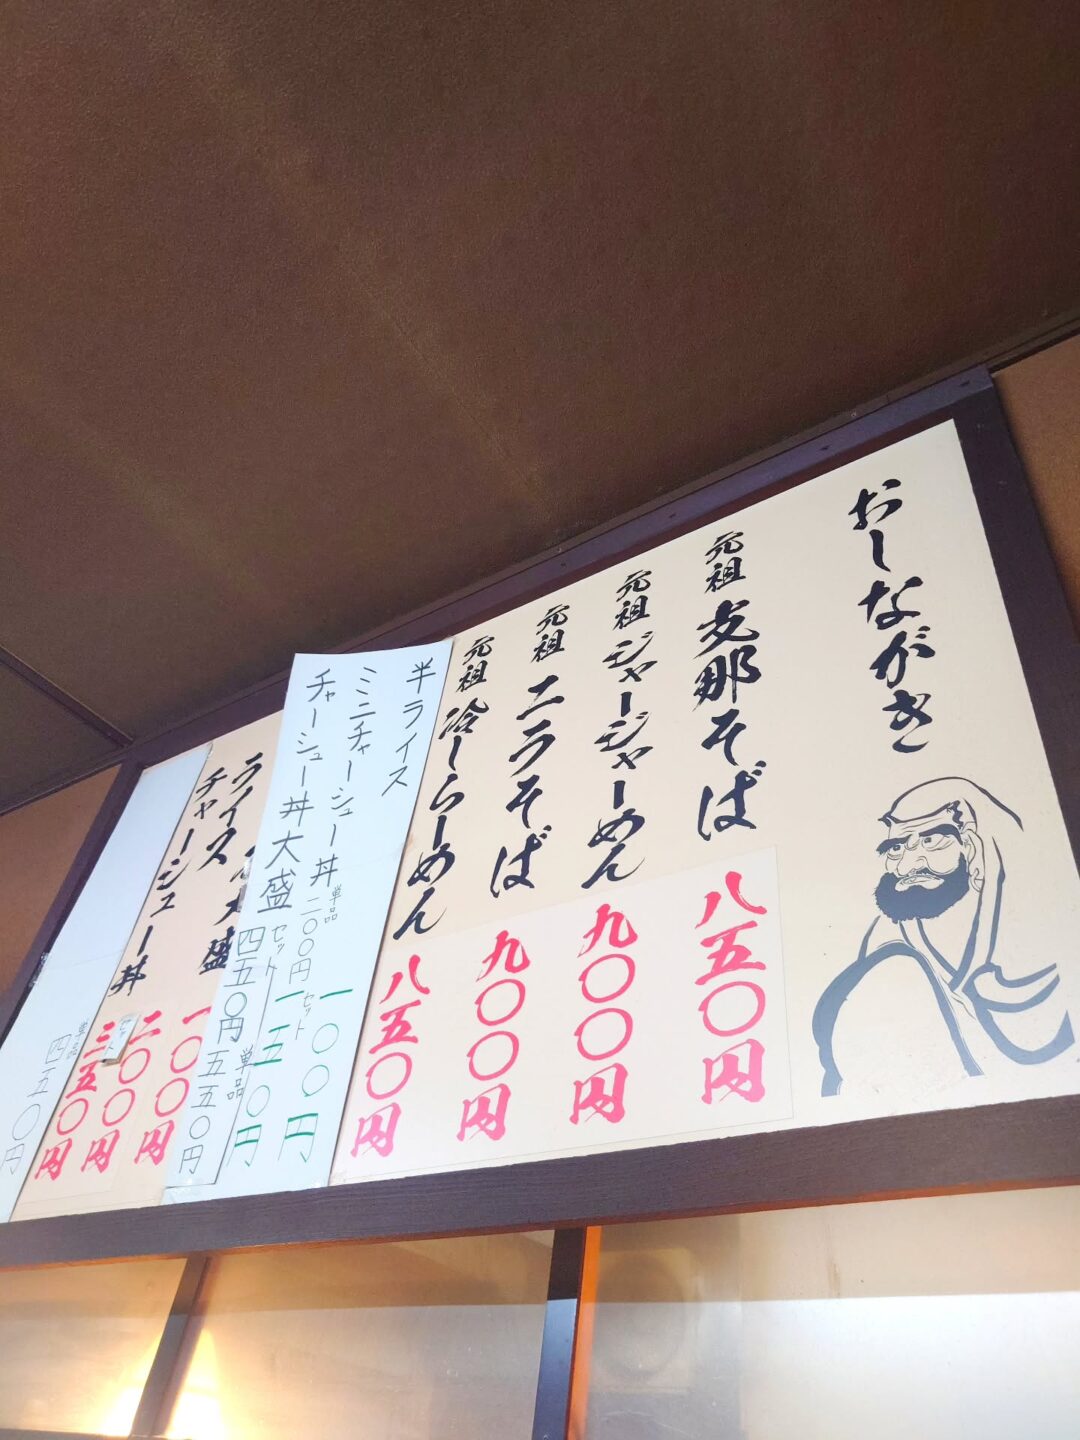 おしながき
元祖 支那そば 八五〇円
元祖 ジャージャーめん 九〇〇円
元祖 ニラそば 九〇〇円
元祖 冷しらーめん 八五〇円
半ライス 一〇〇円
ミニチャーシュー丼 単品 二〇〇円 セット 一五〇円
チャーシュー丼大盛 セット 四五〇円 単品 五五〇円
大盛 一〇〇円
ライス 二〇〇円
チャーシュー丼 セット 三五〇円
単品 四五〇円